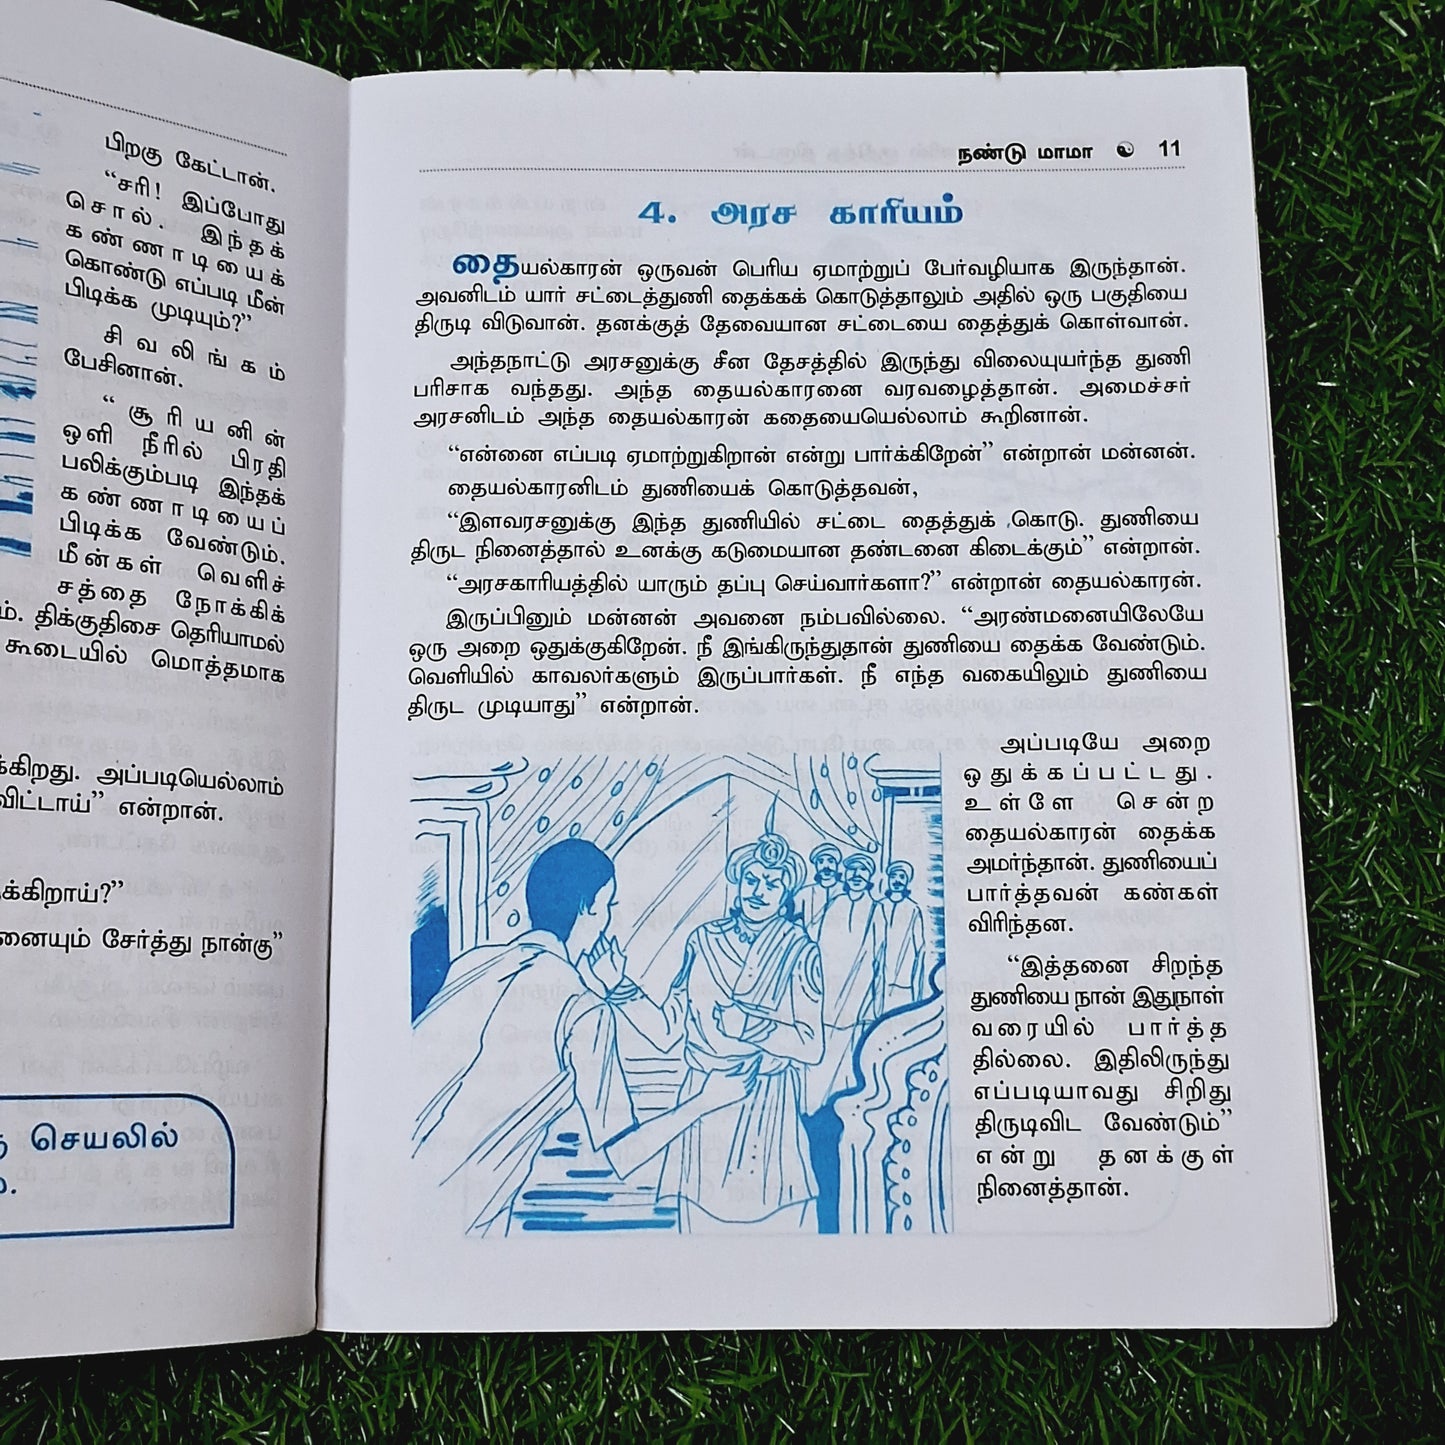 பிறகு கேட்டான்.
“சரி! இப்போது
சொல். இந்தக்
கண்ணாடியைக்
கொண்டு எப்படி மீன்
பிடிக்க முடியும்?”
சிவலிங்கம்
பேசினான்.
“சூரியனின்
ஒளி நீரில் பிரதி
பலிக்கும்படி இந்தக்
கண்ணாடியைப்
பிடிக்க வேண்டும்.
மீன்கள் வெளிச்
சத்தை நோக்கிக்
ம். திக்குதிசை தெரியாமல்
கூடையில் மொத்தமாக
க்கிறது. அப்படியெல்லாம்
விட்டாய்” என்றான்.
க்கிறாய்?”
னையும் சேர்த்து நான்கு”
செயலில்
நண்டு மாமா ☯ 11
4. அரச காரியம்
தையல்காரன் ஒருவன் பெரிய ஏமாற்றுப் பேர்வழியாக இருந்தான்.
அவனிடம் யார் சட்டைத்துணி தைக்கக் கொடுத்தாலும் அதில் ஒரு பகுதியை
திருடி விடுவான். தனக்குத் தேவையான சட்டையை தைத்துக் கொள்வான்.
அந்தநாட்டு அரசனுக்கு சீன தேசத்தில் இருந்து விலையுயர்ந்த துணி
பரிசாக வந்தது. அந்த தையல்காரனை வரவழைத்தான். அமைச்சர்
அரசனிடம் அந்த தையல்காரன் கதையையெல்லாம் கூறினான்.
“என்னை எப்படி ஏமாற்றுகிறான் என்று பார்க்கிறேன்” என்றான் மன்னன்.
தையல்காரனிடம் துணியைக் கொடுத்தவன்,
“இளவரசனுக்கு இந்த துணியில் சட்டை தைத்துக் கொடு. துணியை
திருட நினைத்தால் உனக்கு கடுமையான தண்டனை கிடைக்கும்” என்றான்.
“அரசகாரியத்தில் யாரும் தப்பு செய்வார்களா?” என்றான் தையல்காரன்.
இருப்பினும் மன்னன் அவனை நம்பவில்லை. “அரண்மனையிலேயே
ஒரு அறை ஒதுக்குகிறேன். நீ இங்கிருந்துதான் துணியை தைக்க வேண்டும்.
வெளியில் காவலர்களும் இருப்பார்கள். நீ எந்த வகையிலும் துணியை
திருட முடியாது” என்றான்.
அப்படியே அறை
ஒதுக்கப்பட்டது.
உள்ளே சென்ற
தையல்காரன் தைக்க
அமர்ந்தான். துணியைப்
பார்த்தவன் கண்கள்
விரிந்தன.
“இத்தனை சிறந்த
துணியை நான் இதுநாள்
வரையில் பார்த்த
தில்லை. இதிலிருந்து
எப்படியாவது சிறிது
திருடிவிட வேண்டும்”
என்று தனக்குள்
நினைத்தான்.